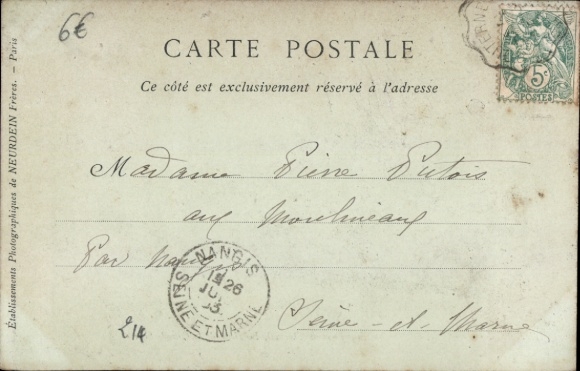 6€
CARTE POSTALE
Ce côté est exclusivement réservé à l'adresse
5c
POSTES
Madame Pierre Putois
aux Moulineaux
Par Nangis
Seine-et-Marne
NANGIS
26
SEINE ET MARNE
214
Établissements Photographiques de NEURDEIN Frères. — Paris